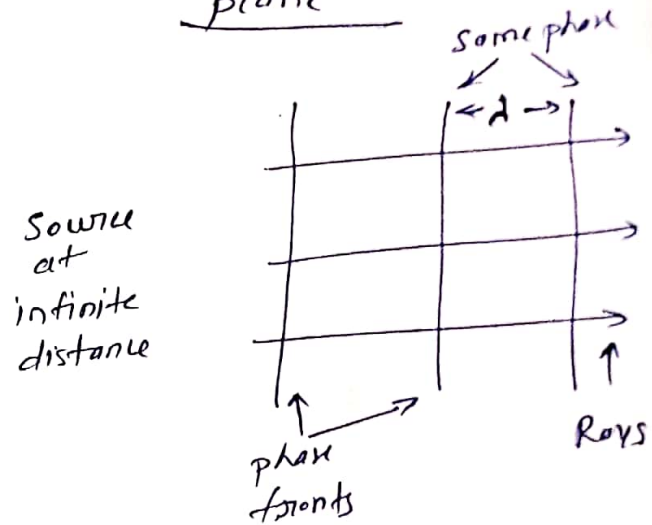 plane
Same phase
← λ →
Source
at
infinite
distance
phase
fronts
Rays